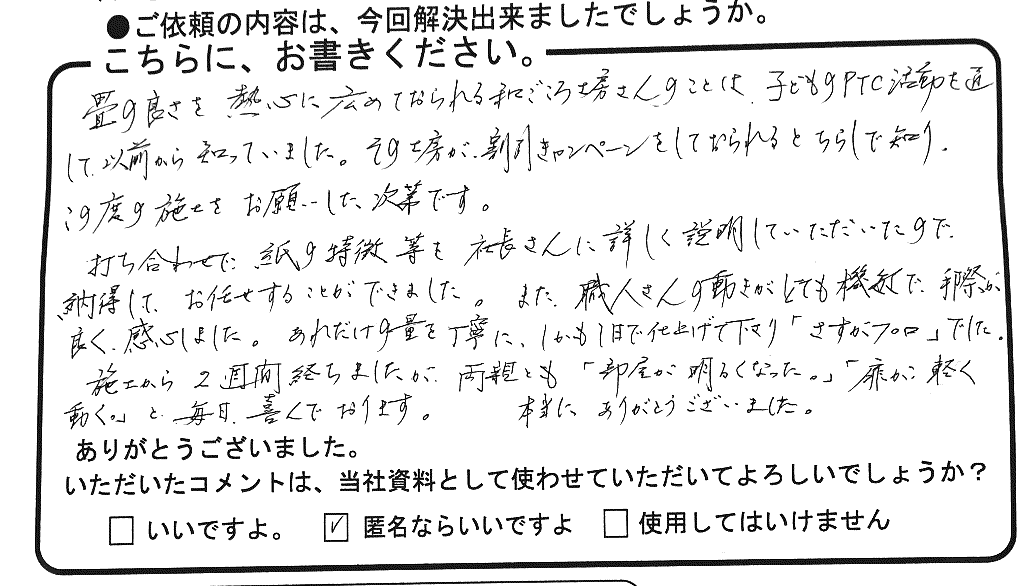 ●ご依頼の内容は、今回解決出来ましたでしょうか。
こちらに、お書きください。
畳の良さを 熱心に広めておられる和ごころ工房さんのことは、子どものPTC活動を通
して、以前から知っていました。その工房が、割引きキャンペーンをしておられるとちらしで知り、
この度の施工を お願いした次第です。
打ち合わせで、紙の特徴等を 社長さんに詳しく説明していただいたので、
納得して、お任せすることができました。また、職人さんの動きがとても機敏で、手際が
良く、感心しました。あれだけの量を丁寧に、しかも1日で仕上げて下さり「さすがプロ」でした。
施工から2週間経ちましたが、両親とも「部屋が明るくなった。」「扉が軽く
動く。」と毎日、喜んでおります。 本当にありがとうございました。
ありがとうございました。
いただいたコメントは、当社資料として使わせていただいてよろしいでしょうか？
□ いいですよ。 ☑ 匿名ならいいですよ □ 使用してはいけません